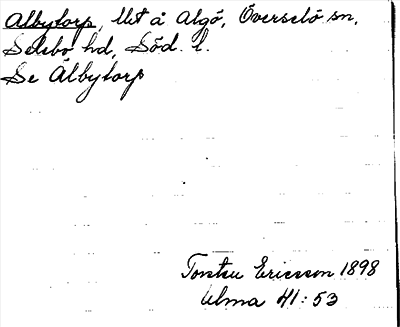 Albytorp, lht å Algö, Överselö sn,
Selebo hd, Söd. l.
Se Älbytorp
Torsten Ericsson 1898
Ulma 41:53